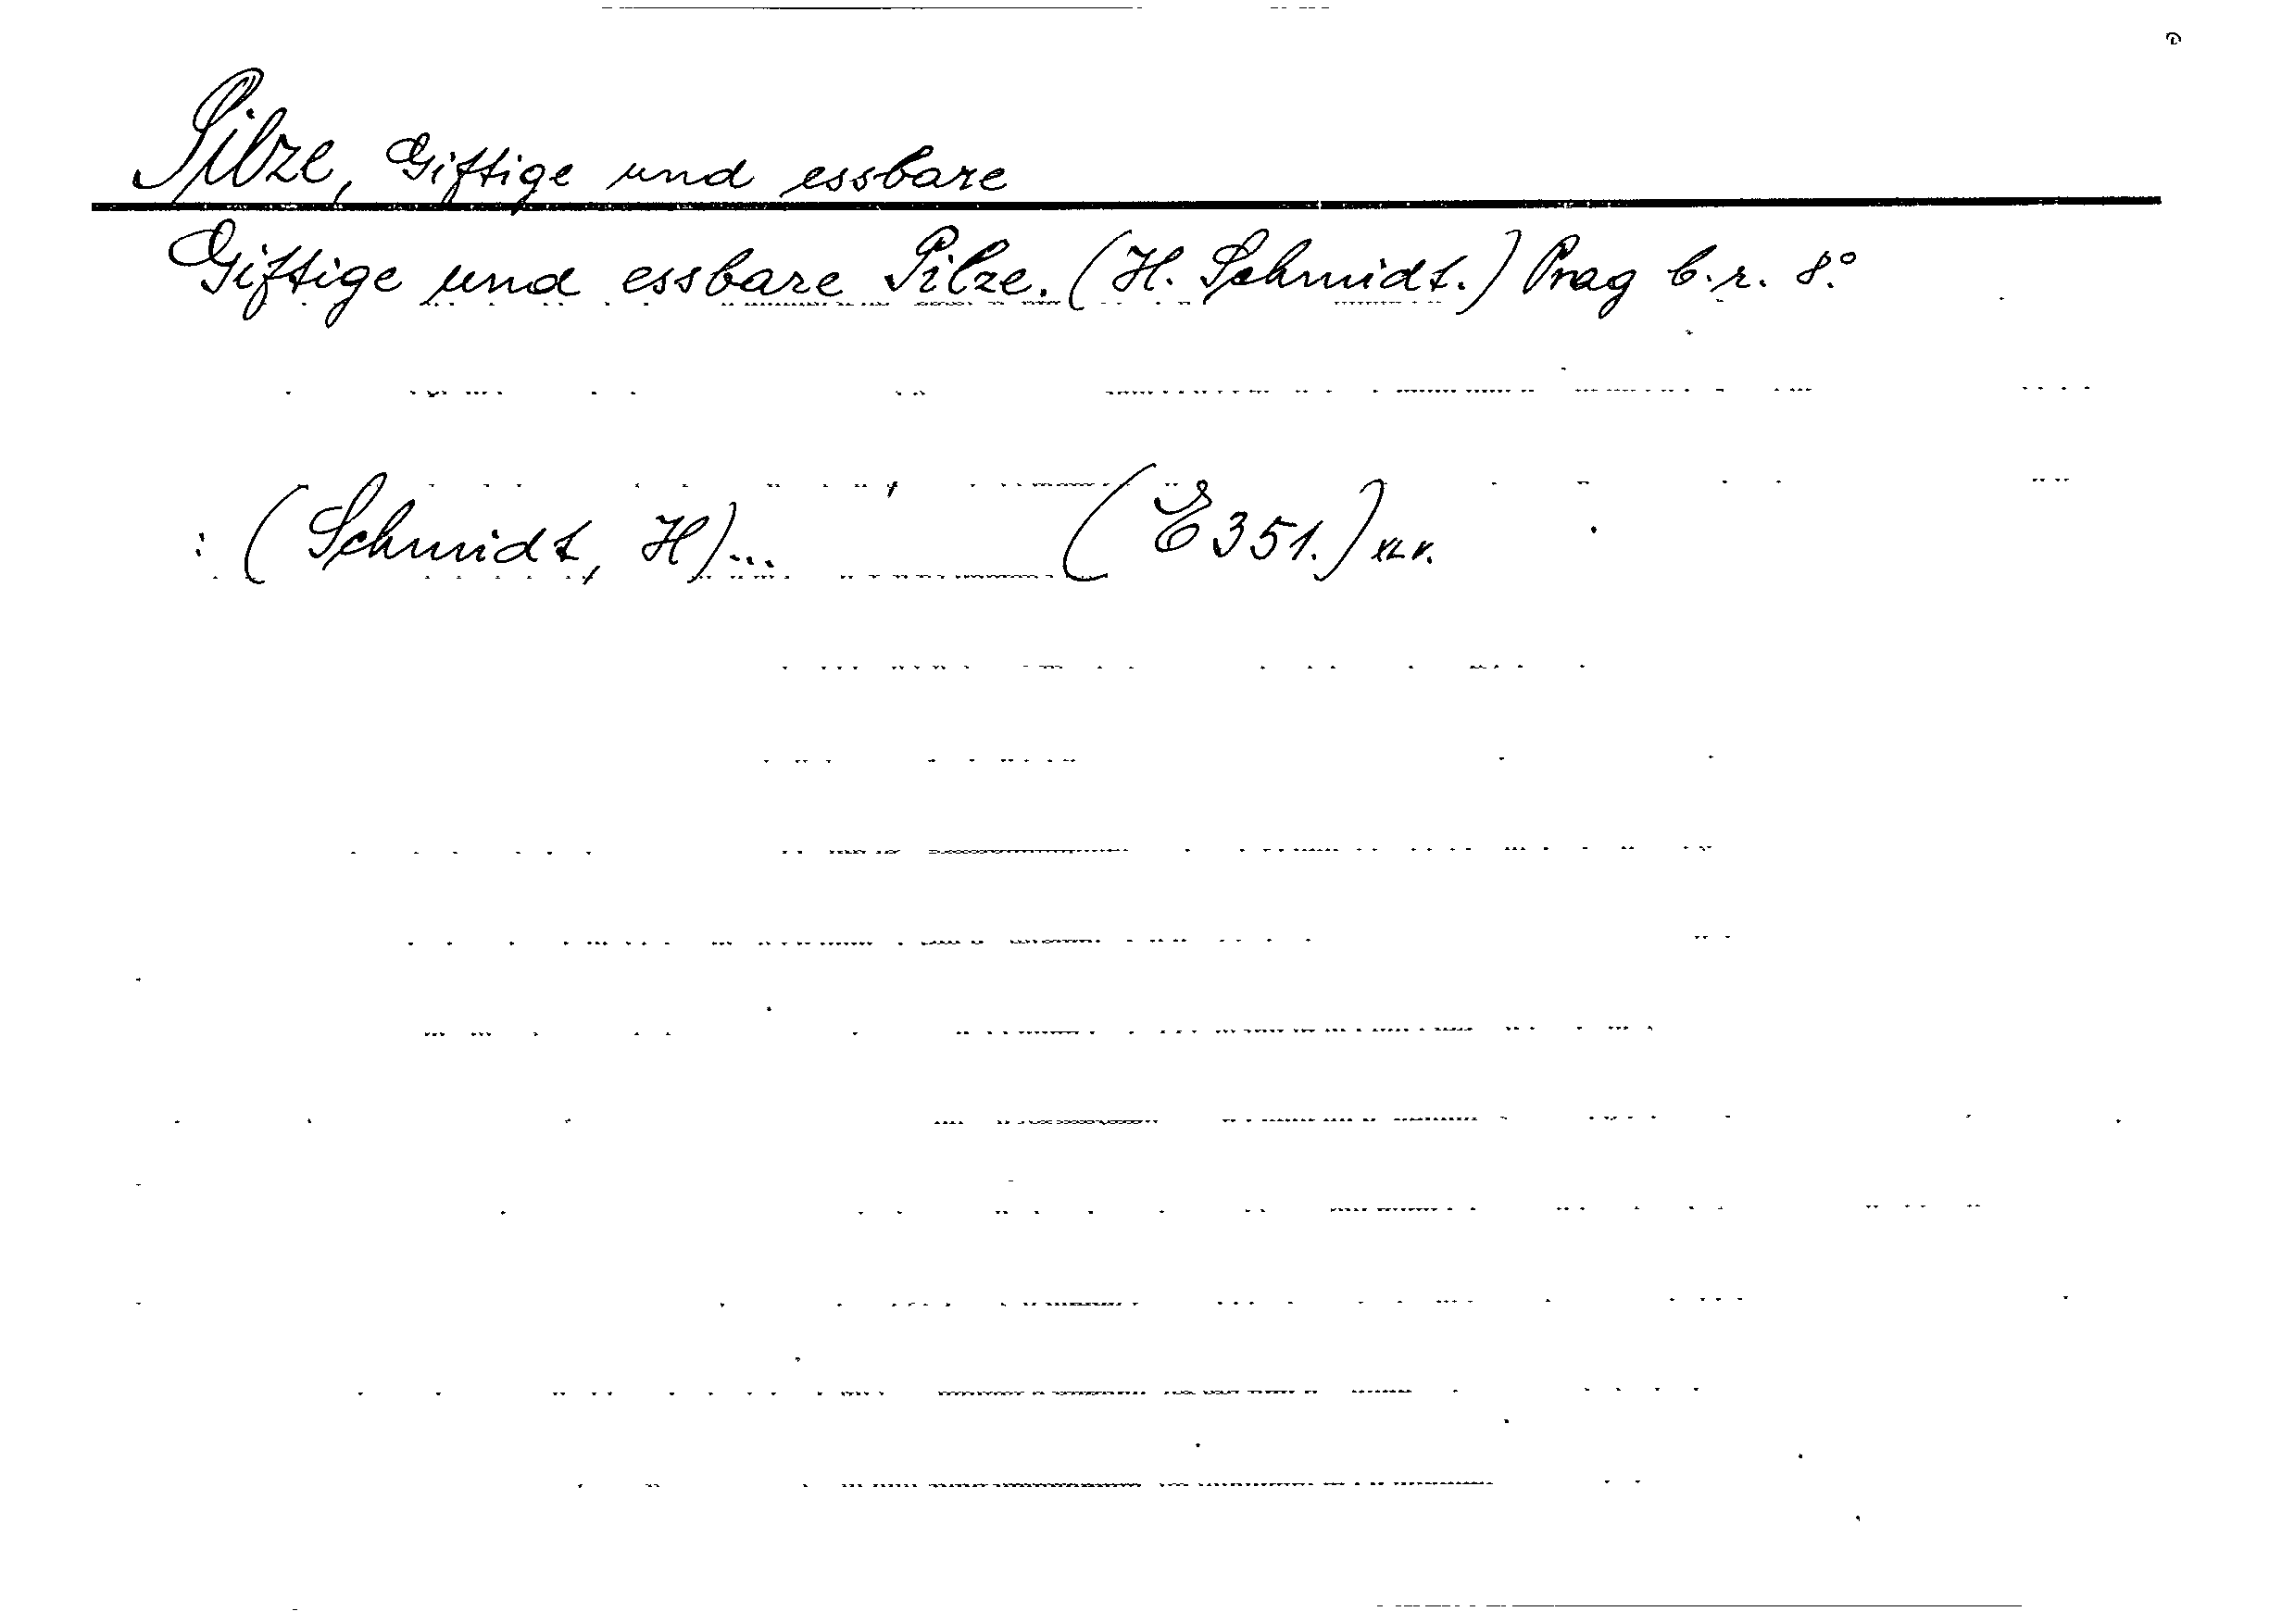 Pilze, Giftige und essbare
Giftige und essbare Pilze. (H. Schmidt.) Prag b.r. 8.°
: (Schmidt, H)... (E351.)